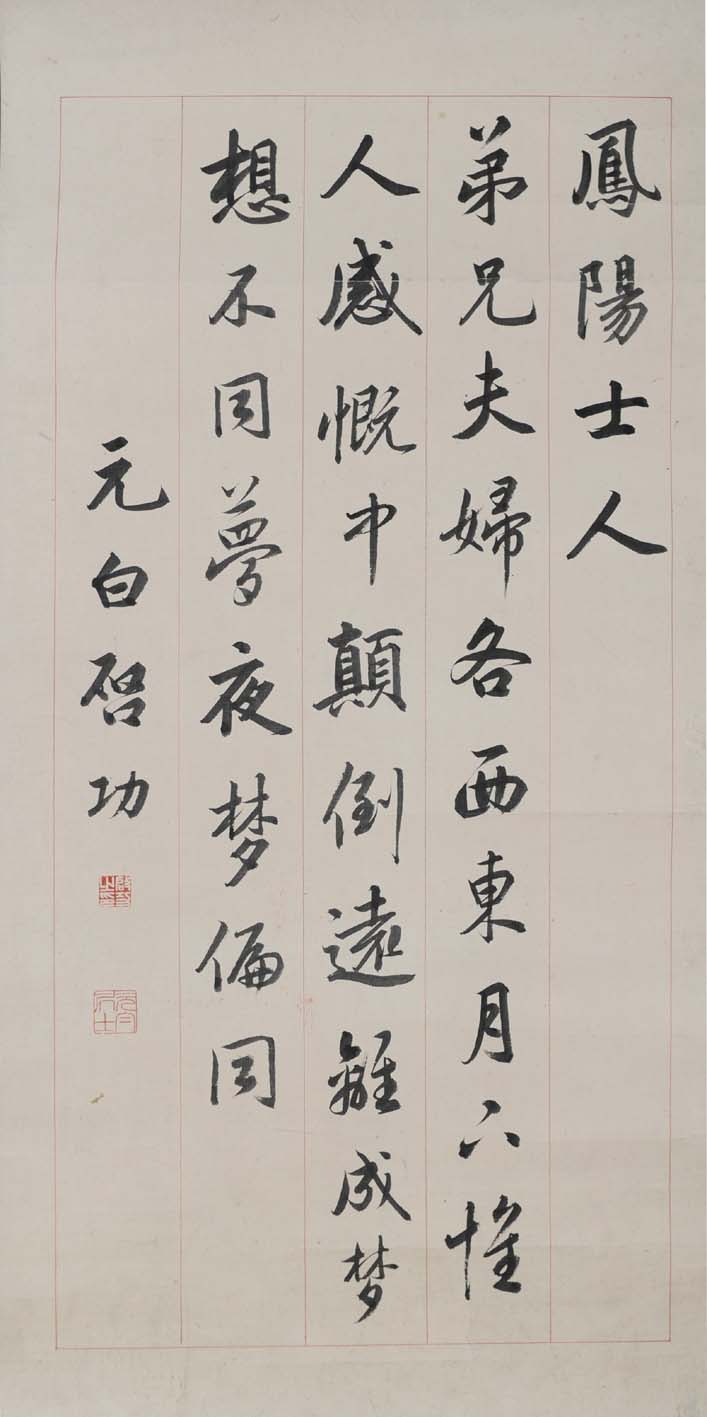 鳳陽士人
弟兄夫婦各西東月下惟
人感慨中顛倒遠離成梦
想不同夢夜梦偏同
元白啓功